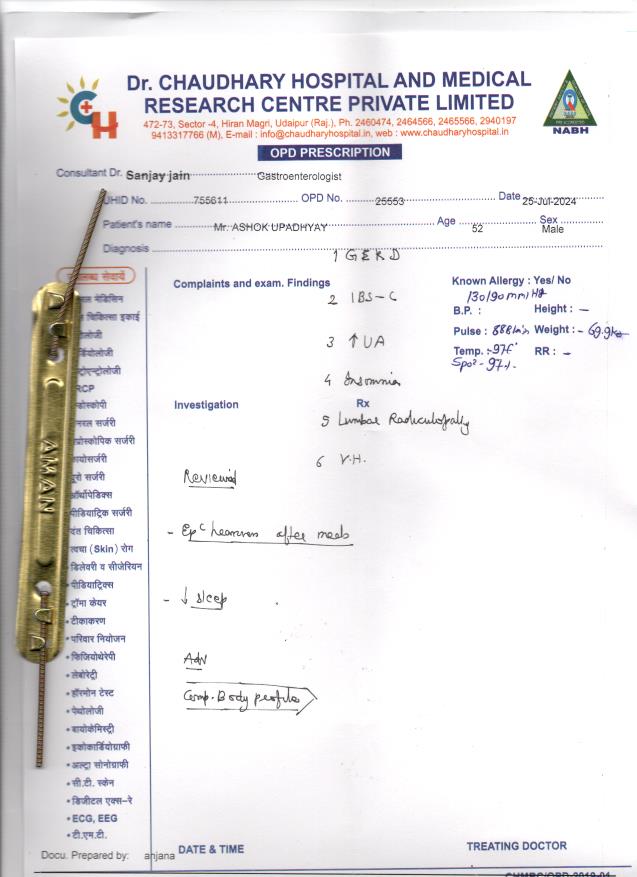 Dr. CHAUDHARY HOSPITAL AND MEDICAL
RESEARCH CENTRE PRIVATE LIMITED
472-73, Sector -4, Hiran Magri, Udaipur (Raj.), Ph. 2460474, 2464566, 2465566, 2940197
9413317766 (M), E-mail : info@chaudharyhospital.in, web : www.chaudharyhospital.in
CH
NABH
OPD PRESCRIPTION
Consultant Dr. Sanjay jain Gastroenterologist
UHID No. 755611 OPD No. 25553 Date 25-Jul-2024
Patient's name Mr. ASHOK UPADHYAY Age 52 Sex Male
Diagnosis
1 GERD
Complaints and exam. Findings
Known Allergy : Yes/ No
2 IBS-C
130/90 mmHg
B.P. : Height : -
3 ↑ UA
Pulse : 88b/min Weight : - 69.9kg
Temp. :- 97F RR : -
Spo2 - 97%.
4 Insomnia
Investigation
Rx
5 Lumbar Radiculopathy
6 V.H.
Reviewed
- after meals
- ↓ sleep
Adv
Comp. Body profile
AMAN
चिकित्सा इकाई
RCP
रल सर्जरी
प्रोस्कोपिक सर्जरी
सर्जरी
ऑर्थोपेडिक्स
पीडियाट्रिक सर्जरी
दंत चिकित्सा
त्वचा (Skin) रोग
डिलेवरी व सीजेरियन
• पीडियाट्रिक्स
• ट्रॉमा केयर
• टीकाकरण
• परिवार नियोजन
• फिजियोथेरेपी
• लेबोरेट्री
• हॉरमोन टेस्ट
• पेथोलॉजी
• बायोकेमिस्ट्री
• इकोकार्डियोग्राफी
• अल्ट्रा सोनोग्राफी
• सी.टी. स्केन
• डिजीटल एक्स-रे
• ECG, EEG
• टी.एम.टी.
Docu. Prepared by: anjana
DATE & TIME
TREATING DOCTOR